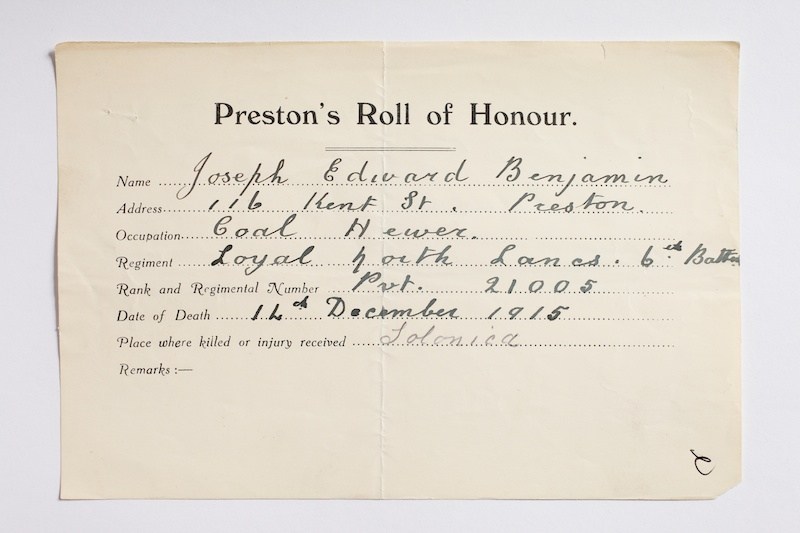 Preston's Roll of Honour.
Name Joseph Edward Benjamin
Address 116 Kent St. Preston.
Occupation Coal Hewer.
Regiment Loyal North Lancs. 6th Battn
Rank and Regimental Number Pvt. 21005
Date of Death 14th December 1915
Place where killed or injury received Solonica
Remarks :—